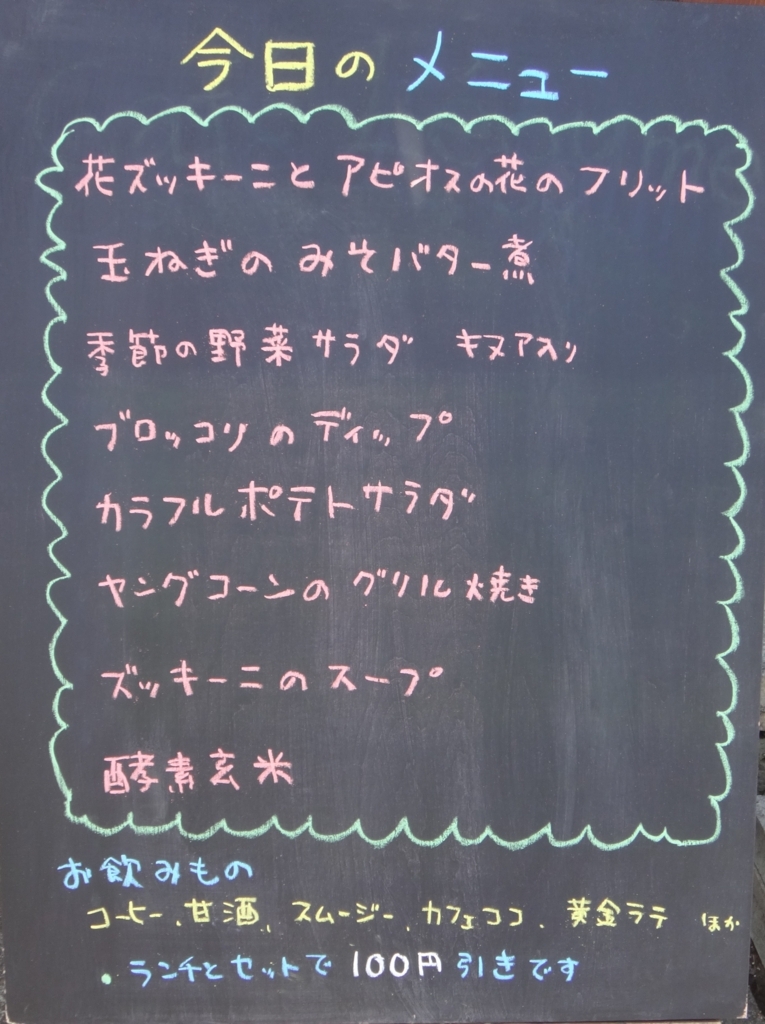 今日のメニュー
花ズッキーニとアピオスの花のフリット
玉ねぎの みそバター煮
季節の野菜サラダ キヌア入り
ブロッコリのディップ
カラフルポテトサラダ
ヤングコーンのグリル焼き
ズッキーニのスープ
酵素玄米
お飲みもの
コーヒー、甘酒、スムージー、カフェココ、黄金ラテ ほか
・ランチとセットで100円引きです